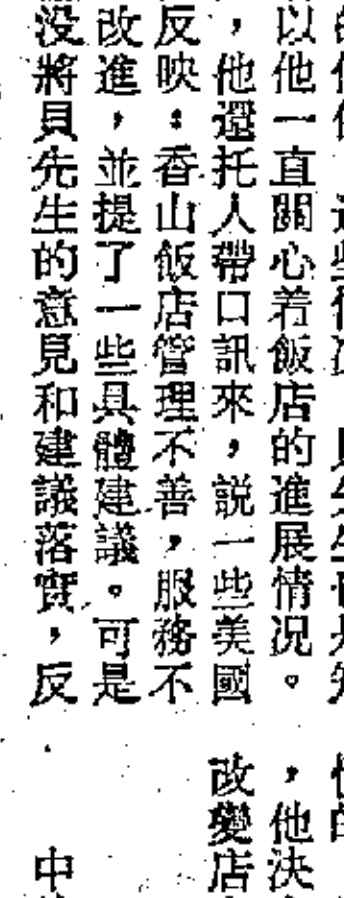 以他一直關心着飯店的進展情况。
，他還托人帶口訊來，説一些美國
反映：香山飯店管理不善，服務不
改進，並提了一些具體建議。可是
没將貝先生的意見和建議落實，反
，他決
改變店
中